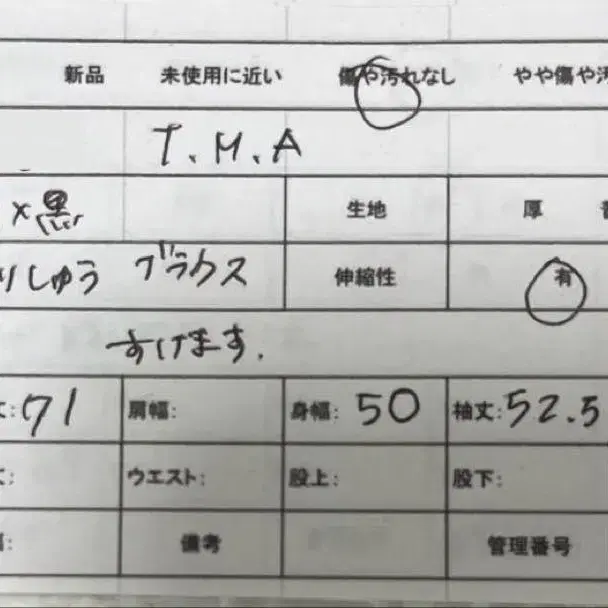 新品 未使用に近い 傷や汚れなし やや傷や汚
T.M.A
×黒 生地 厚
りしゅう ブラウス 伸縮性 有
すけます.
丈:71 肩幅: 身幅:50 袖丈:52.5
ウエスト: 股上: 股下:
備考 管理番号